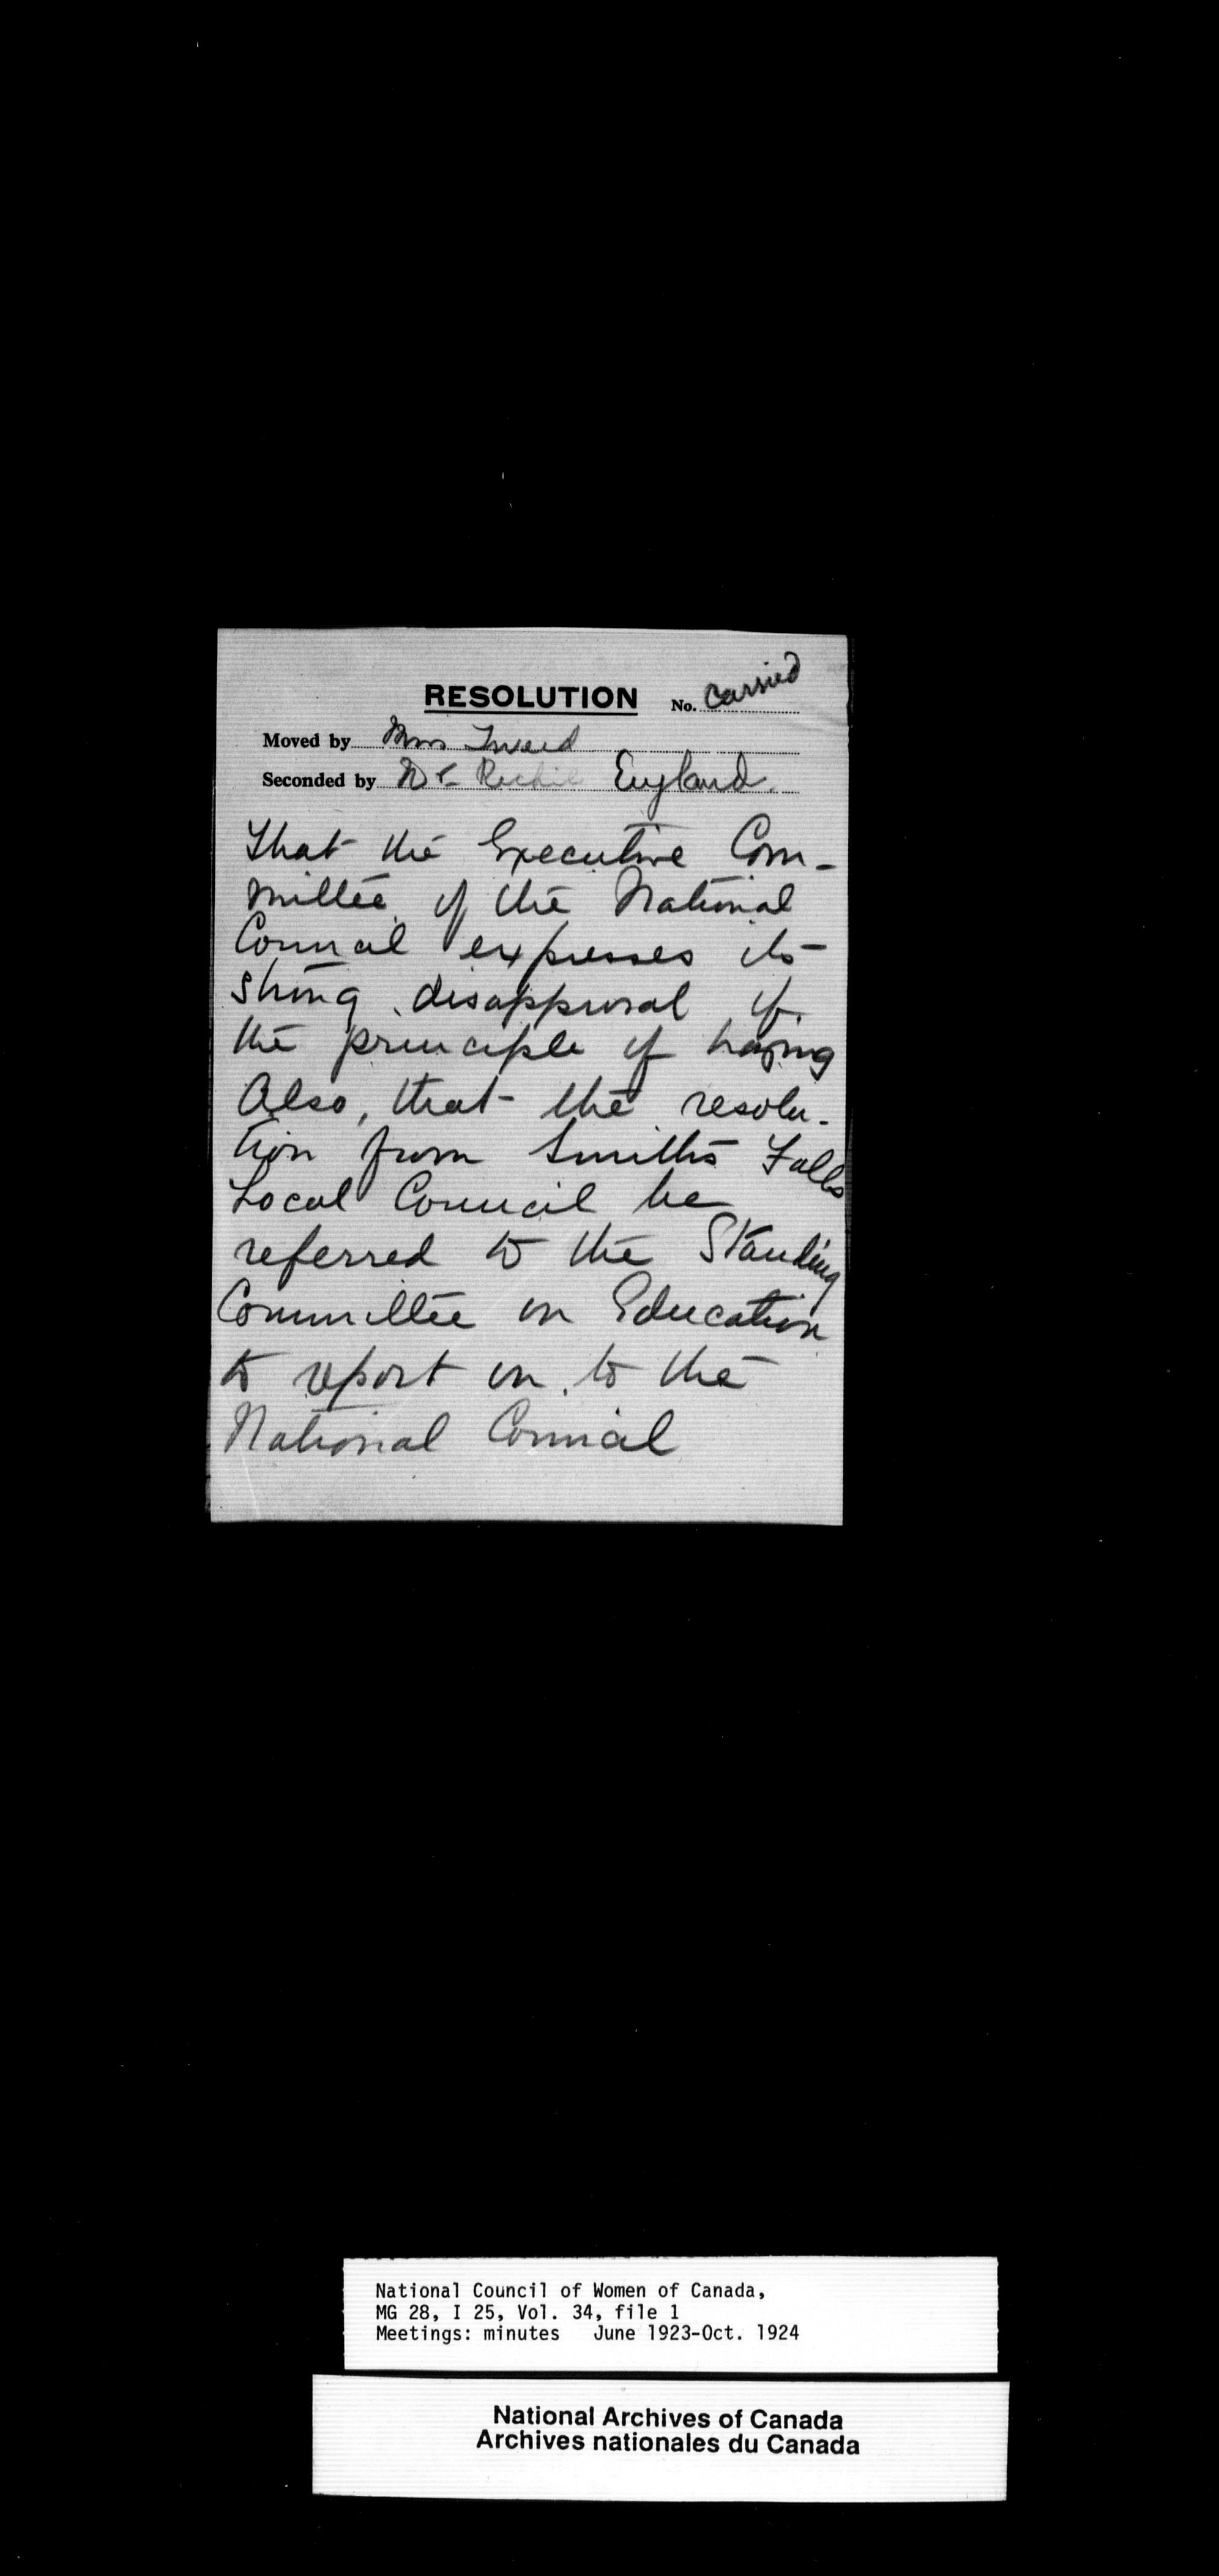 RESOLUTION No. Carried
Moved by Mrs Tweed
Seconded by Dr Richie England.
That the Executive Com-
mittee of the National
Council expresses its
strong disapproval of
the principle of hazing
Also, that the resolu-
tion from Smiths Falls
Local Council be
referred to the Standing
Committee on Education
to report on to the
National Council
National Council of Women of Canada,
MG 28, I 25, Vol. 34, file 1
Meetings: minutes June 1923-Oct. 1924
National Archives of Canada
Archives nationales du Canada